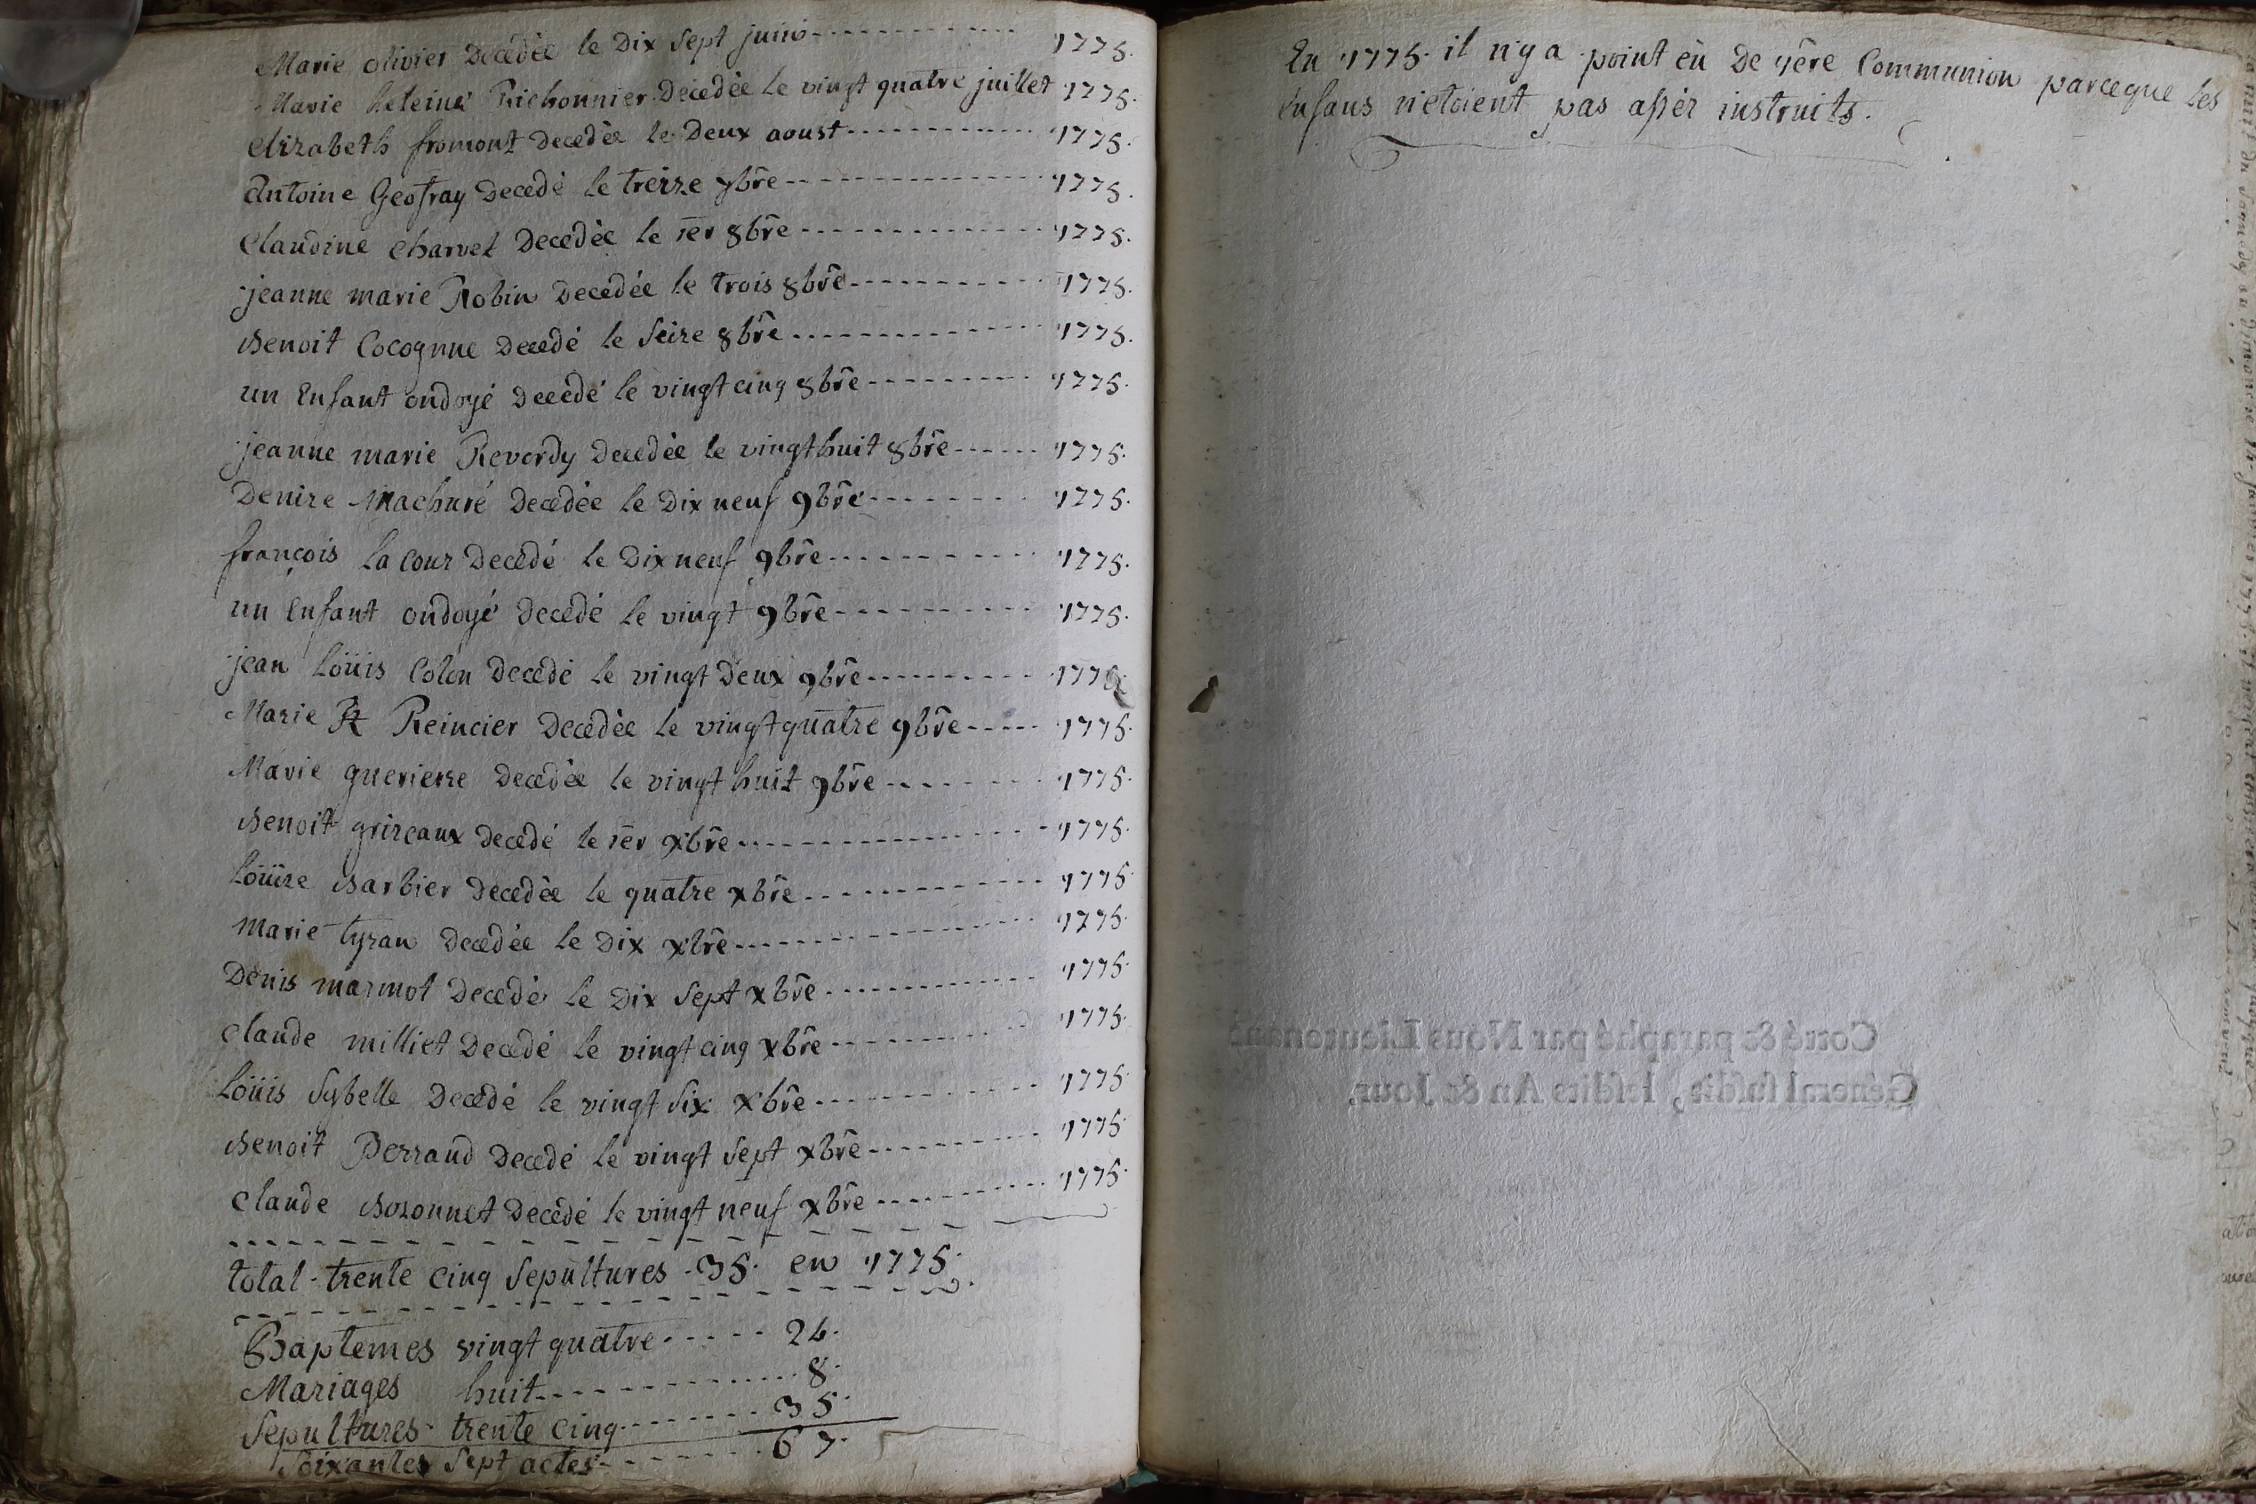 Marie olivier Decedée le Dix Sept juin ------------ 1775.
Marie Richonnier Decedée le vingt quatre juillet 1775.
Elizabeth fromont Decedée le Deux aoust ------------ 1775.
Antoine Geofray Decedé le treize 7bre ------------ 1775.
Claudine Charvet Decedée le 1er 8bre ------------ 1775.
jeanne marie Robin Decedée le trois 8bre ------------ 1775.
Benoit Cocognne Decedé le Seize 8bre ------------ 1775.
un Enfant ondoyé Decedé le vingt cinq 8bre --------- 1775.
jeanne marie Reverdy Decedée le vingt huit 8bre ------ 1775.
Denize Machuré Decedée le Dix neuf 9bre --------- 1775.
françois la cour Decedé le Dix neuf 9bre ---------- 1775.
un Enfant ondoyé Decedé le vingt 9bre ---------- 1775.
jean Loüis Colon Decedé le vingt Deux 9bre ---------- 1775.
Marie Reincier Decedée le vingt quatre 9bre ----- 1775.
Marie guerierre Decedée le vingt huit 9bre ------- 1775.
Benoit grizeaux Decedé le 1er xbre ------------ 1775.
Loüize Barbier Decedée le quatre xbre ---------- 1775
Marie tyran Decedée le Dix xbre ------------ 1775.
Denis marmot Decedé le Dix Sept xbre ---------- 1775.
Claude milliet Decedé le vingt cinq xbre --------- 1775.
Loüis Sybelle Decedé le vingt Six xbre ---------- 1775.
Benoit Perraud Decedé le vingt Sept xbre --------- 1775.
Claude Bozonnet Decedé le vingt neuf xbre --------- 1775.
total - trente cinq Sepultures - 35. en 1775.
Baptemes vingt quatre ----- 24.
Mariages huit ------------ 8.
Sepultures - trente cinq ------- 35.
Soixantes Sept actes ------ 67.
En 1775. il n'y a point eù De 1ère Communion parceque les
enfans n'etoient pas assèz instruits.
Cotté & paraphé par Nous Lieutenant
Général susdit, lesdits An & Jour.